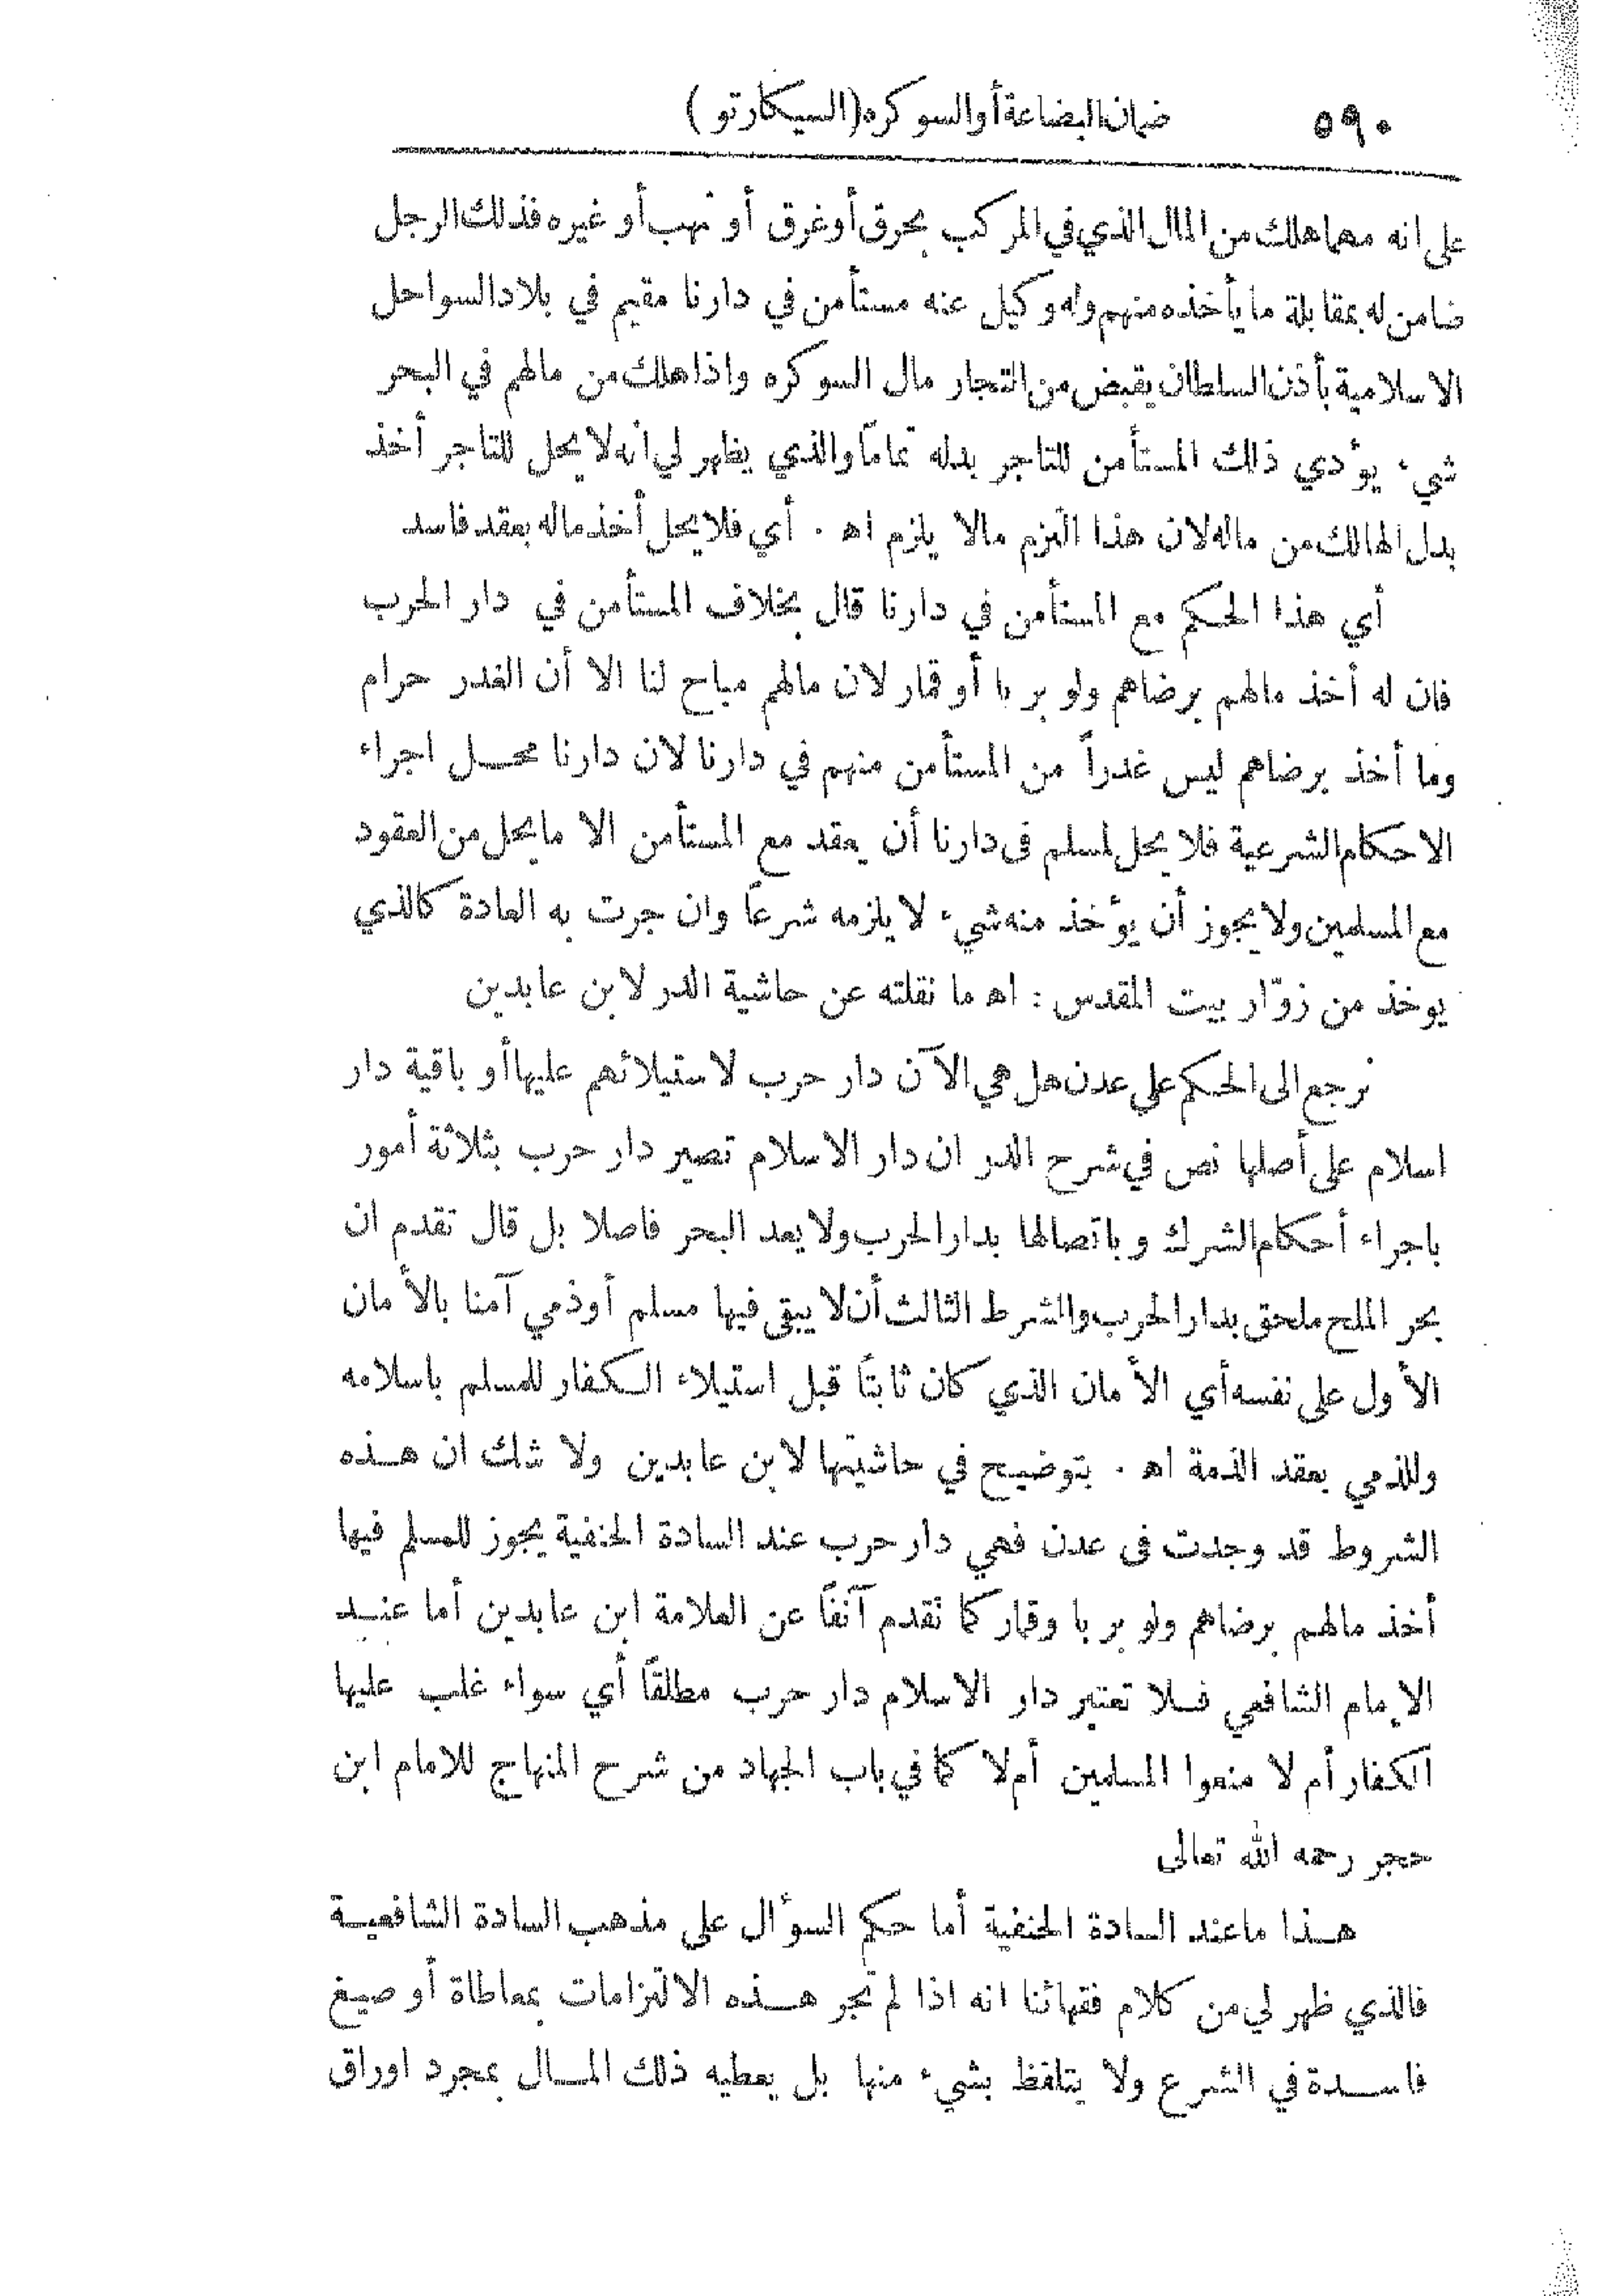 ٥٩٠ ضمان البضاعة أو السوكره (السيكارتو)
على انه مهما هلك من المال الذي في المركب بحرق أو غرق أو نهب أو غيره فذلك الرجل
ضامن له بمقابلة ما يأخذه منهم وله وكيل عنه مستأمن في دارنا مقيم في بلاد السواحل
الاسلامية بأذن السلطان يقبض من التجار مال السوكره واذا هلك من مالهم في البحر
شيء يؤدي ذلك المستأمن للتاجر بدله تمامًا والذي يظهر لي انه لا يحل للتاجر أخذ
بدل الهالك من ماله لان هذا التزم مالا يلزم اه . أي فلا يحل أخذ ماله بعقد فاسد
أي هذا الحكم مع المستأمن في دارنا قال بخلاف المستأمن في دار الحرب
فان له أخذ مالهم برضاهم ولو بربا أو قمار لان مالهم مباح لنا الا أن الغدر حرام
وما أخذ برضاهم ليس غدراً من المستأمن منهم في دارنا لان دارنا محل اجراء
الاحكام الشرعية فلا يحل لمسلم فى دارنا أن يعقد مع المستأمن الا ما يحل من العقود
مع المسلمين ولا يجوز أن يؤخذ منه شيء لا يلزمه شرعًا وان جرت به العادة كالذي
يوخذ من زوّار بيت المقدس : اه ما نقلته عن حاشية الدر لابن عابدين
نرجع الى الحكم على عدن هل هي الآن دار حرب لاستيلائهم عليها أو باقية دار
اسلام على أصلها نص في شرح الدر ان دار الاسلام تصير دار حرب بثلاثة أمور
باجراء أحكام الشرك وباتصالها بدار الحرب ولا يعد البحر فاصلا بل قال تقدم ان
بحر الملح ملحق بدار الحرب والشرط الثالث أن لا يبقى فيها مسلم أو ذمي آمنا بالأمان
الأول على نفسه أي الأمان الذي كان ثابتًا قبل استيلاء الكفار للمسلم باسلامه
وللذمي بعقد الذمة اه . بتوضيح في حاشيتها لابن عابدين ولا شك ان هذه
الشروط قد وجدت فى عدن فهي دار حرب عند السادة الحنفية يجوز للمسلم فيها
أخذ مالهم برضاهم ولو بربا وقمار كما تقدم آنفًا عن العلامة ابن عابدين أما عند
الإمام الشافعي فلا تعتبر دار الاسلام دار حرب مطلقًا أي سواء غلب عليها
الكفار أم لا منعوا المسلمين أم لا كما في باب الجهاد من شرح المنهاج للامام ابن
حجر رحمه الله تعالى
هذا ما عند السادة الحنفية أما حكم السؤال على مذهب السادة الشافعية
فالذي ظهر لي من كلام فقهائنا انه اذا لم تجر هذه الالتزامات بمعاطاة أو صيغ
فاسدة في الشرع ولا يتلفظ بشيء منها بل يعطيه ذلك المال بمجرد اوراق